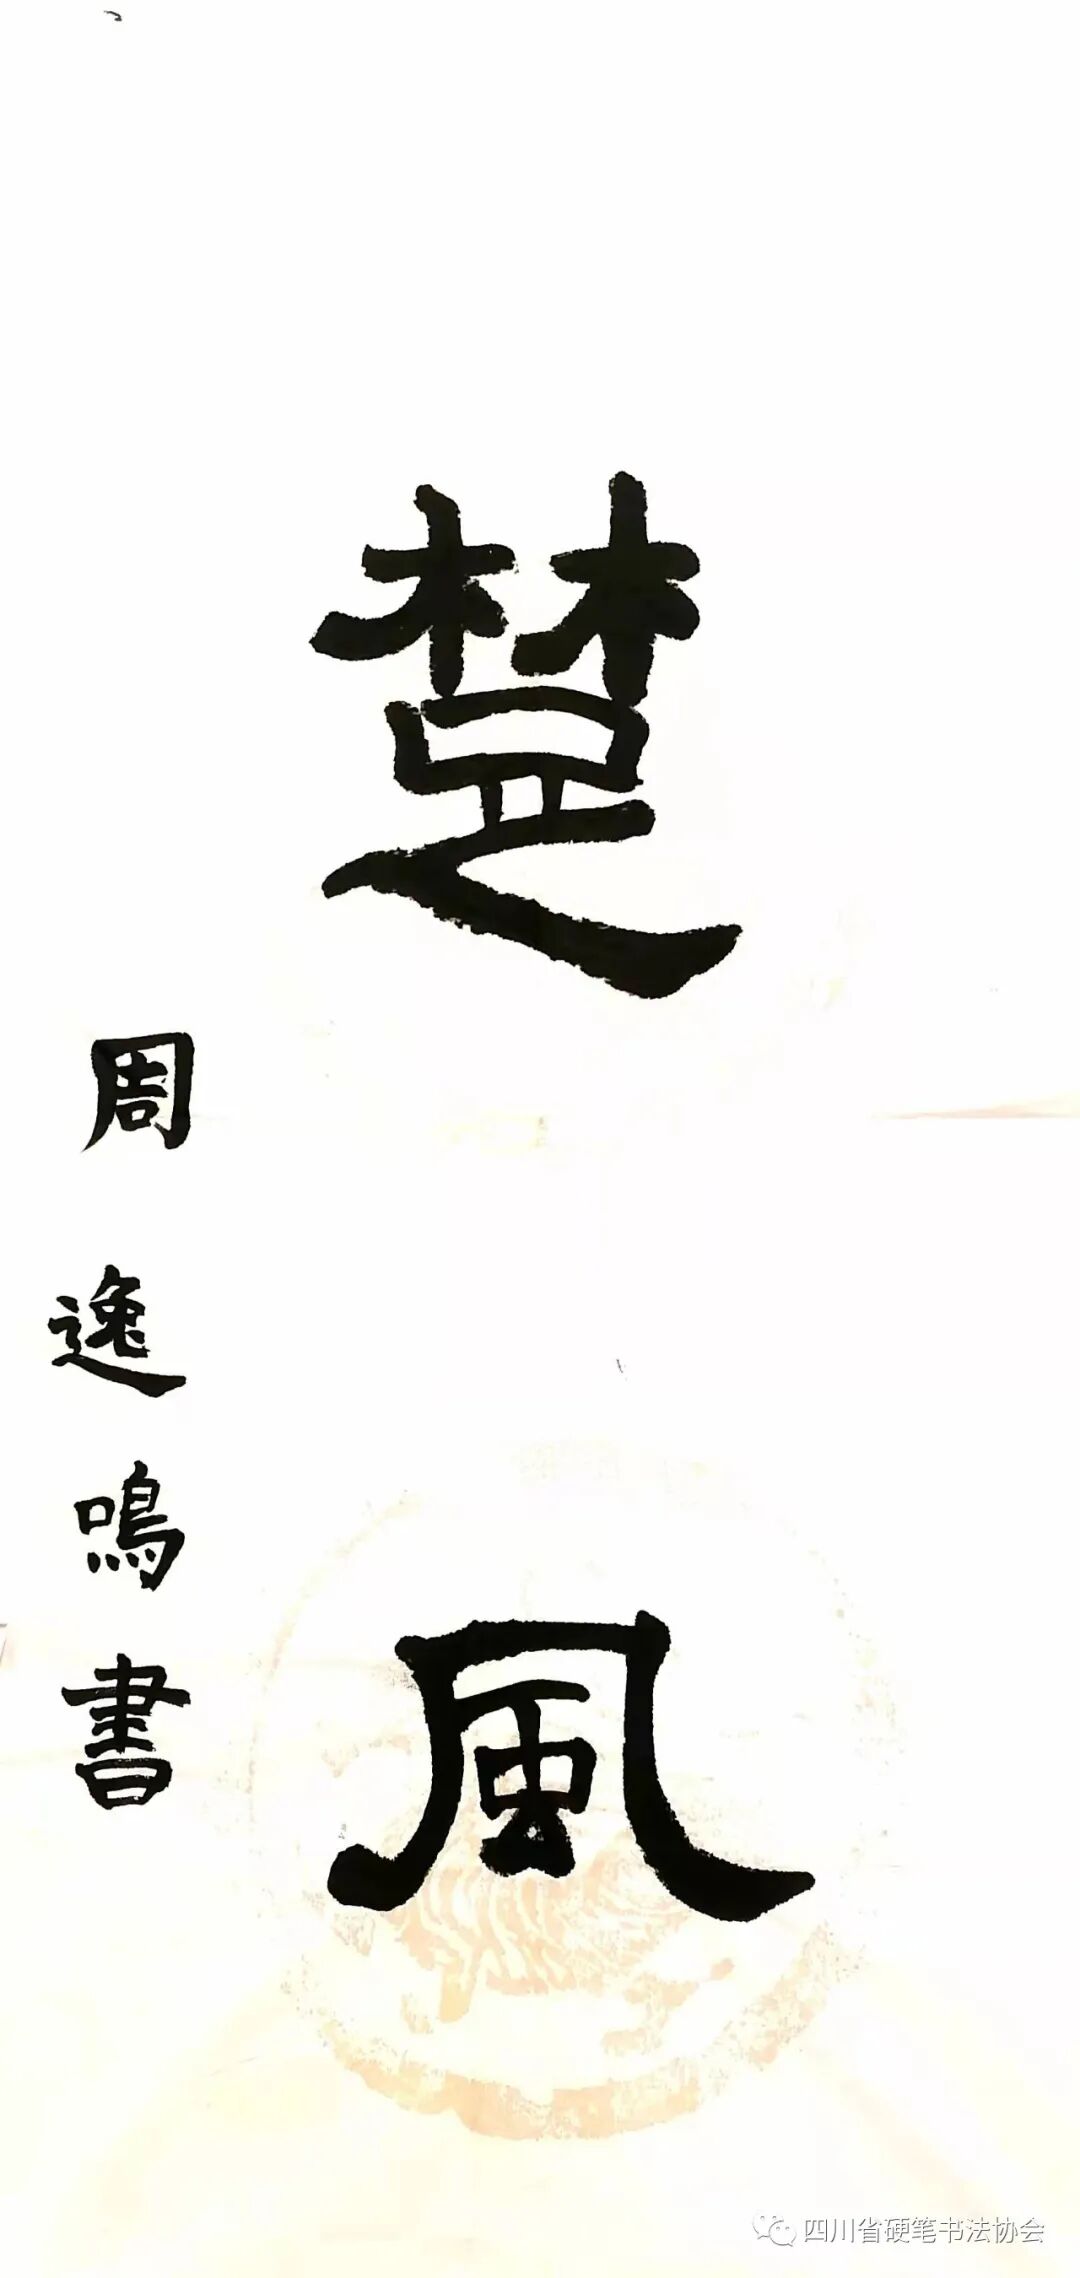 楚風
周逸鳴書
四川省硬笔书法协会